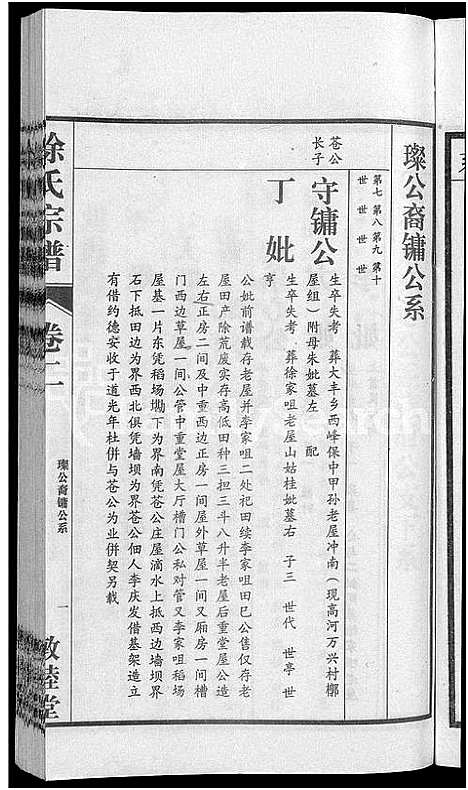 璨公裔镛公系
第七世
第八世
第九世
第十世
苍公长子
守镛公
生卒失考 葬大丰乡西峰保中甲孙老屋冲南（现高河万兴村椰
屋组）附母朱妣墓左 配
丁妣
生卒失考 葬徐家咀老屋山姑桂妣墓右 子三 世代 世亭 世
亨
公妣前谱载存老屋并李家咀二处祀田续李家咀田已公售仅存老
屋田产除荒废实存高低田种三担三斗八升半老屋后重堂屋公造
左右正房二间及中重西边正房一间屋外草屋一间又厢房一间槽
门西边草屋一间公管中重堂屋大厅槽门公私对管又李家咀稻场
屋基一片东凭稻场墈下为界南凭苍公庄屋滴水上抵西边墙坝界
石下抵田边为界西北俱凭墙坝为界苍公佃人李庆发借基架造立
有借约德安收于道光年杜併与苍公为业併契另载
徐氏宗谱
卷二
璨公裔镛公系
一
敦睦堂